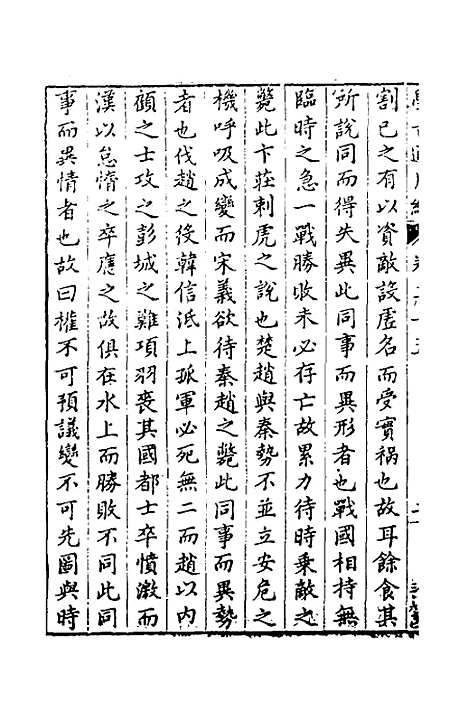 割己之有以資敵設虛名而受實祸也故耳餘食其
所說同而得失異此同事而異形者也戰國相持無
臨時之急一戰勝敗未必存亡故累力待時乗敵之
斃此卞莊刺虎之說也楚趙與秦勢不並立安危之
機呼吸成變而宋義欲待秦趙之斃此同事而異勢
者也伐趙之役韓信泜上孤軍必死無二而趙以内
顧之士攻之彭城之難項羽喪其國都士卒憤激而
漢以怠惰之卒應之故俱在水上而勝敗不同此同
事而異情者也故曰權不可預議變不可先圖與時